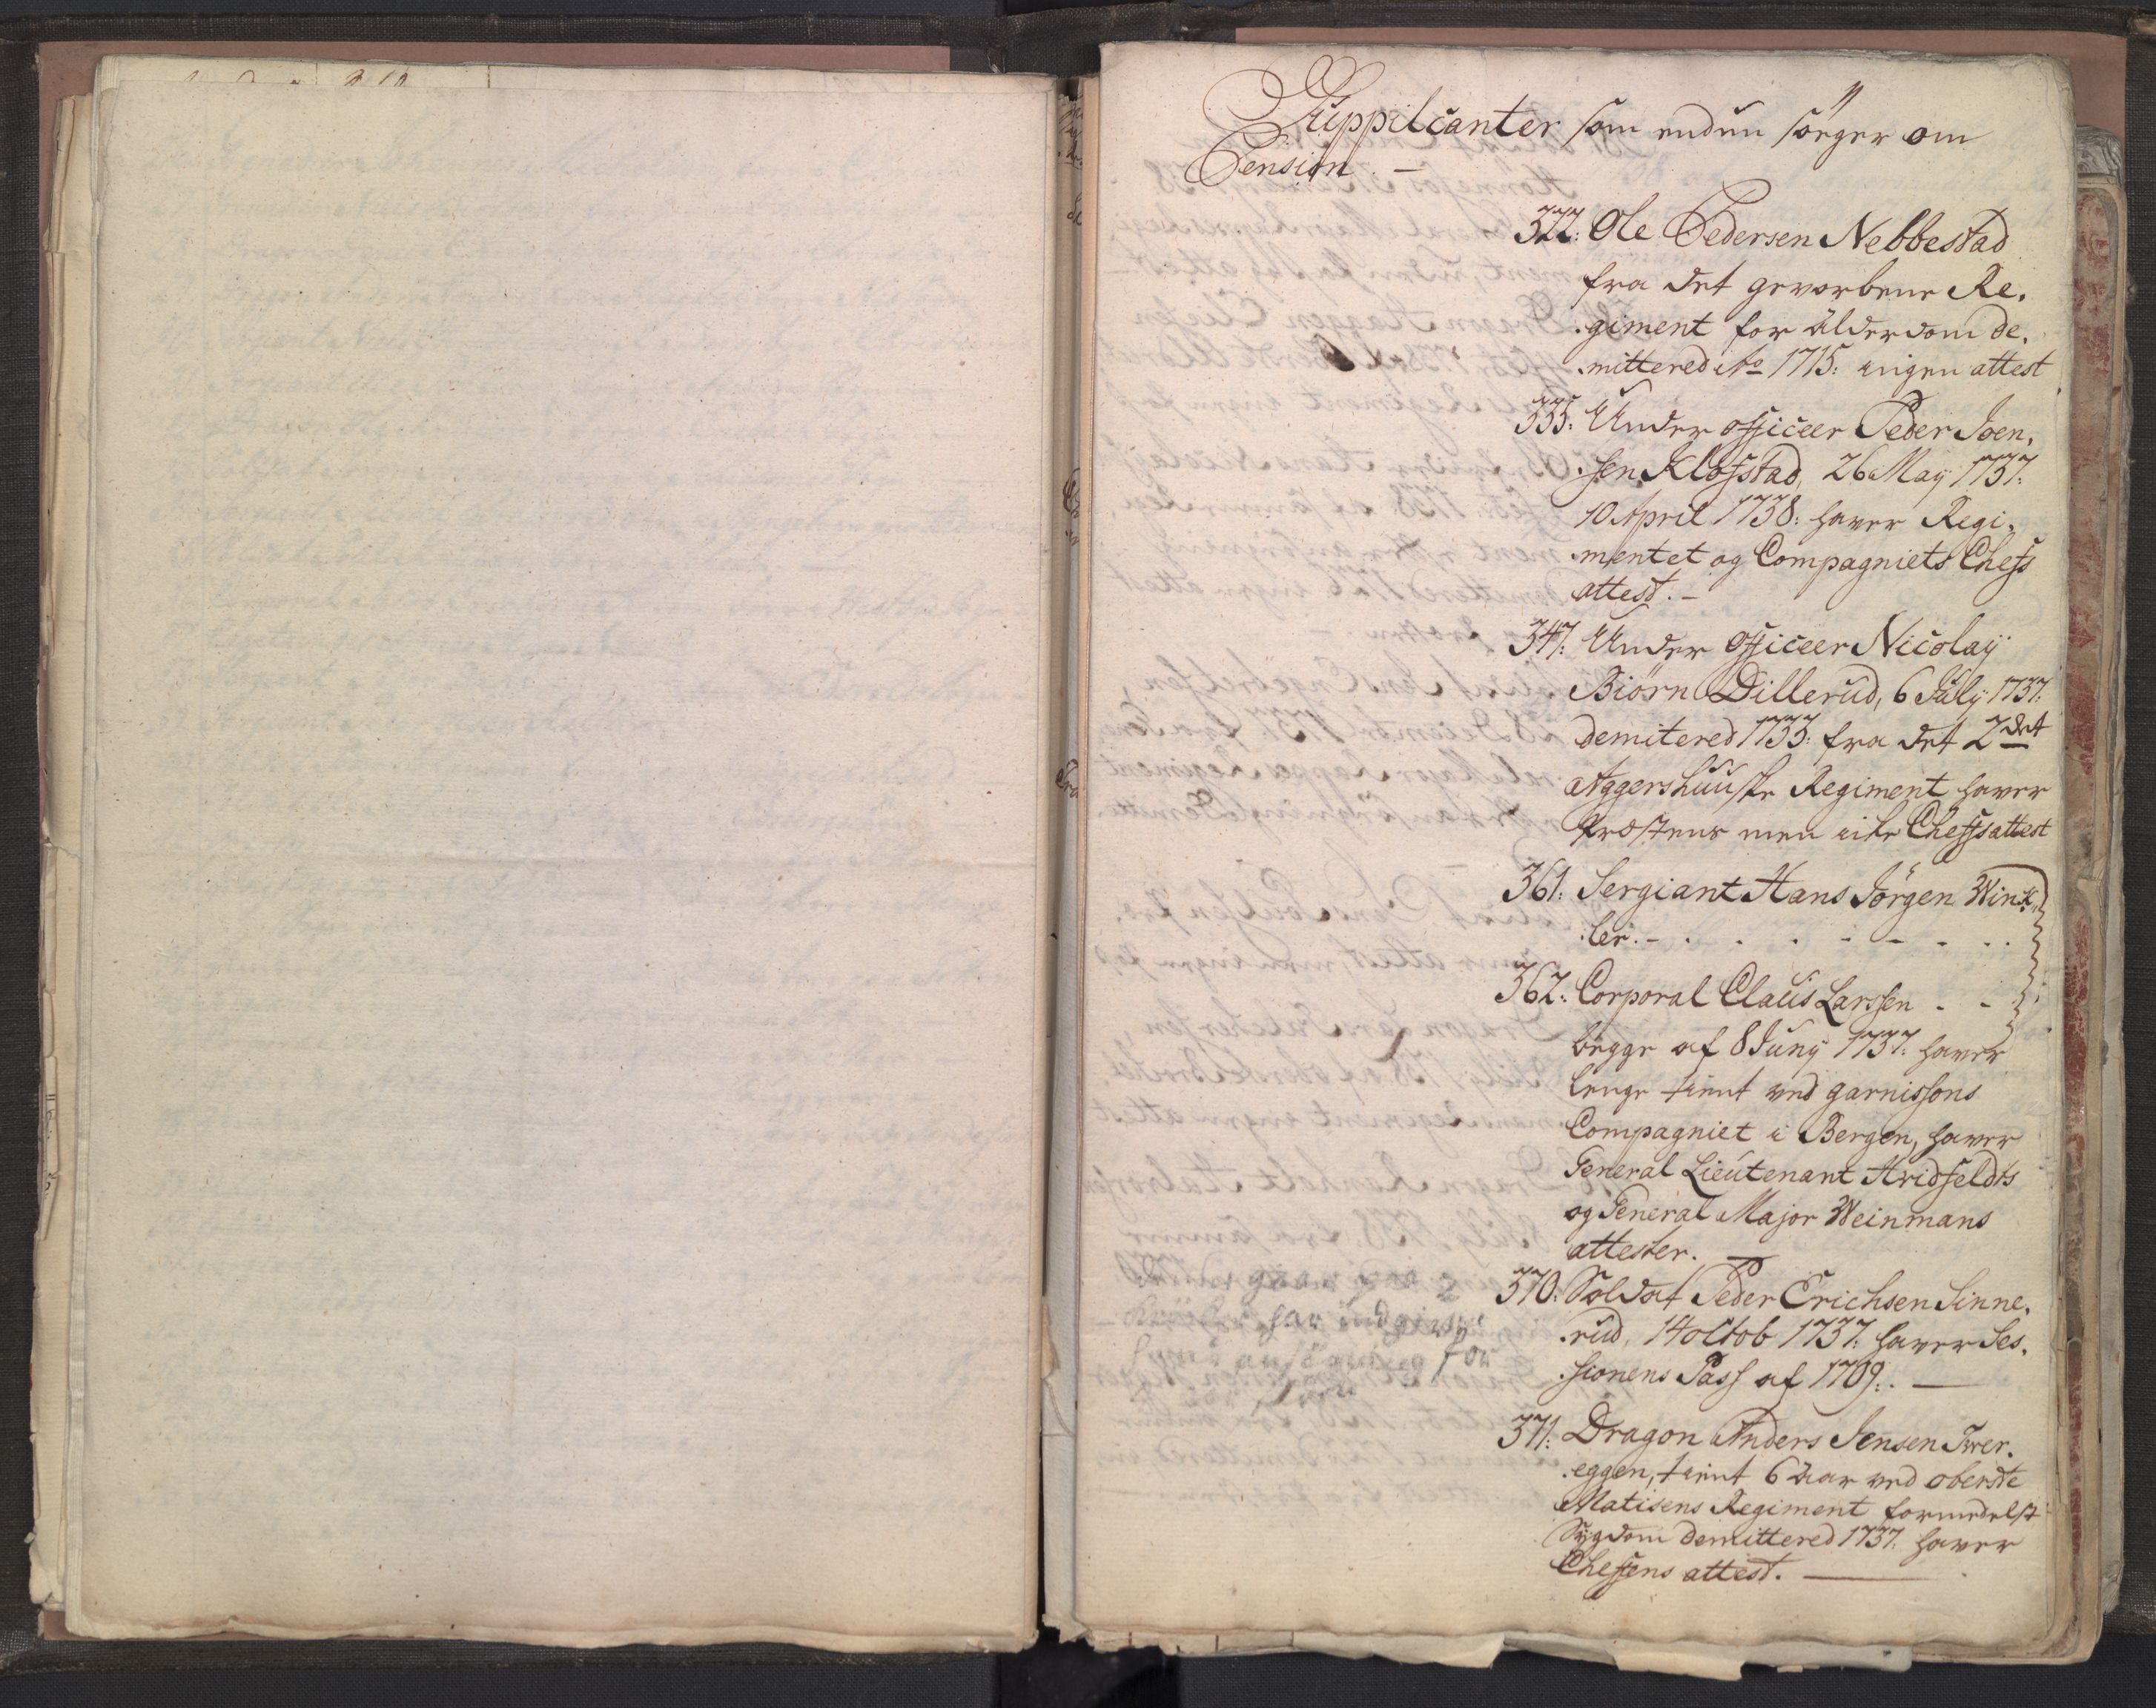 Suppilcanter som endnu söeger om
Pension. —
322: Ole Pedersen Nebbestad
fra det gevorbene Re.
.giment for alderdom de.
.mittered Ao 1715: ingen attest
335: Under officeer Peder Joen.
.sen Klofstad, 26 May 1737:
10 April 1738: haver Regi.
.mentet og Compagniets Chefs
attest. –
347: Under officeer Nicolaÿ
Biörn Dillerud, 6 Julÿ 1737:
demitered 1733: fra det 2det
Aggershuuske Regiment haver
Præstens men icke Chefs attest
361: Sergiant Hans Jörgen Wink.
.ler. – . . . – – . . .
362: Corporal Claus Larssen . –
begge af 8 Junÿ 1737: haver
lenge tient ved garnissons
Compagniet i Bergen, haver
General Lieutenant Hvidfeldts
og General Major Weinmans
attester. —
370: Soldat Peder Erichsen Sinne.
.rud, 14 Octob 1737: haver Ses.
.sionens Pass af 1709: . —
371: Dragon Anders Jensen Tver.
.eggen, tient 6 aar ved oberste
Matisens Regiment formedelst
Sÿgdom demittered 1737: haver
Chefens attest. —